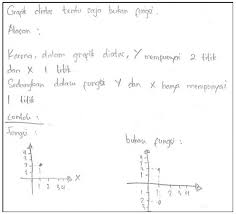 Grafik diatas tentu saja bukan fungsi.
Alasan :
Karena, dalam grafik diatas, Y mempunyai 2 titik
dan X 1 titik
Sedangkan dalam fungsi Y dan X hanya mempunyai
1 titik
Contoh :
Fungsi : bukan fungsi :